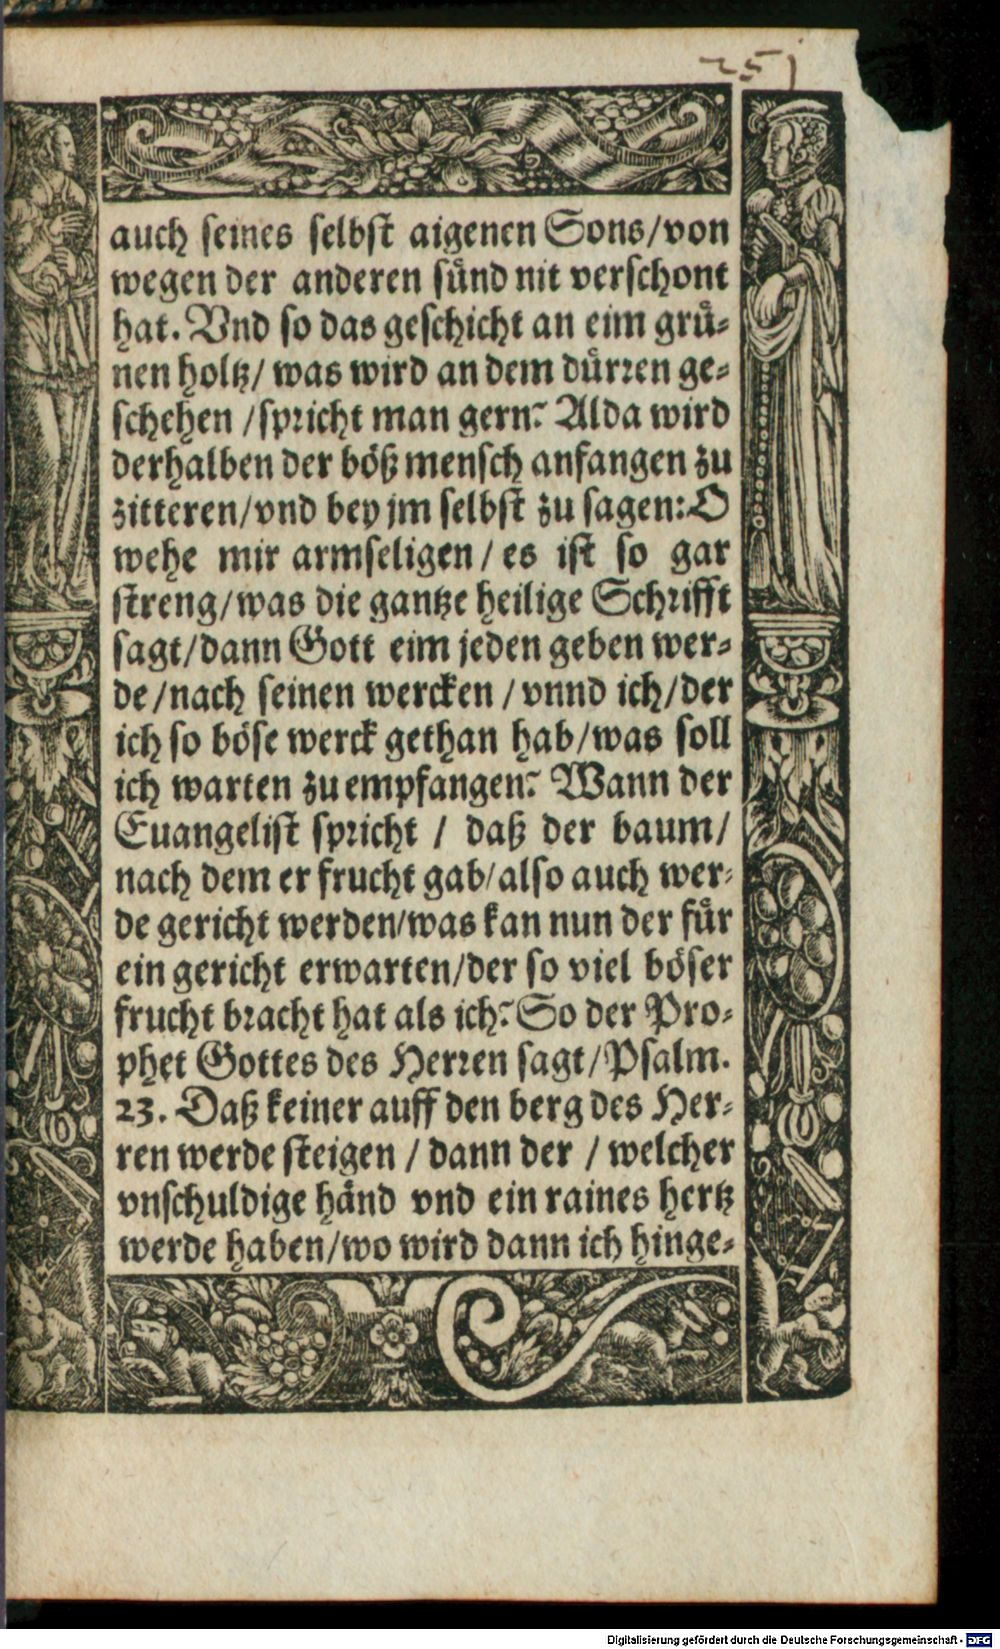 251
auch seines selbst aigenen Sons/von
wegen der anderen sünd nit verschont
hat. Vnd so das geschicht an eim grü-
nen holtz/ was wird an dem dürren ge-
schehen /spricht man gern? Alda wird
derhalben der böß mensch anfangen zu
zitteren/vnd bey jm selbst zu sagen: O
wehe mir armseligen / es ist so gar
streng/was die gantze heilige Schrifft
sagt/dann Gott eim jeden geben wer-
de/nach seinen wercken / vnnd ich/der
ich so böse werck gethan hab/was soll
ich warten zu empfangen? Wann der
Euangelist spricht / daß der baum/
nach dem er frucht gab/also auch wer-
de gericht werden/was kan nun der für
ein gericht erwarten/der so viel böser
frucht bracht hat als ich? So der Pro-
phet Gottes des Herren sagt/Psalm.
23. Daß keiner auff den berg des Her-
ren werde steigen / dann der / welcher
vnschuldige händ vnd ein raines hertz
werde haben/wo wird dann ich hinge-
Digitalisierung gefördert durch die Deutsche Forschungsgemeinschaft - DFG